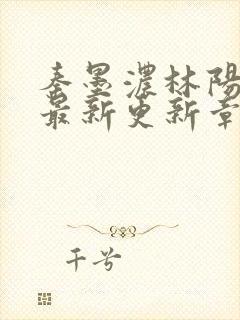 秦墨濃林陽
最新更新章
千兮